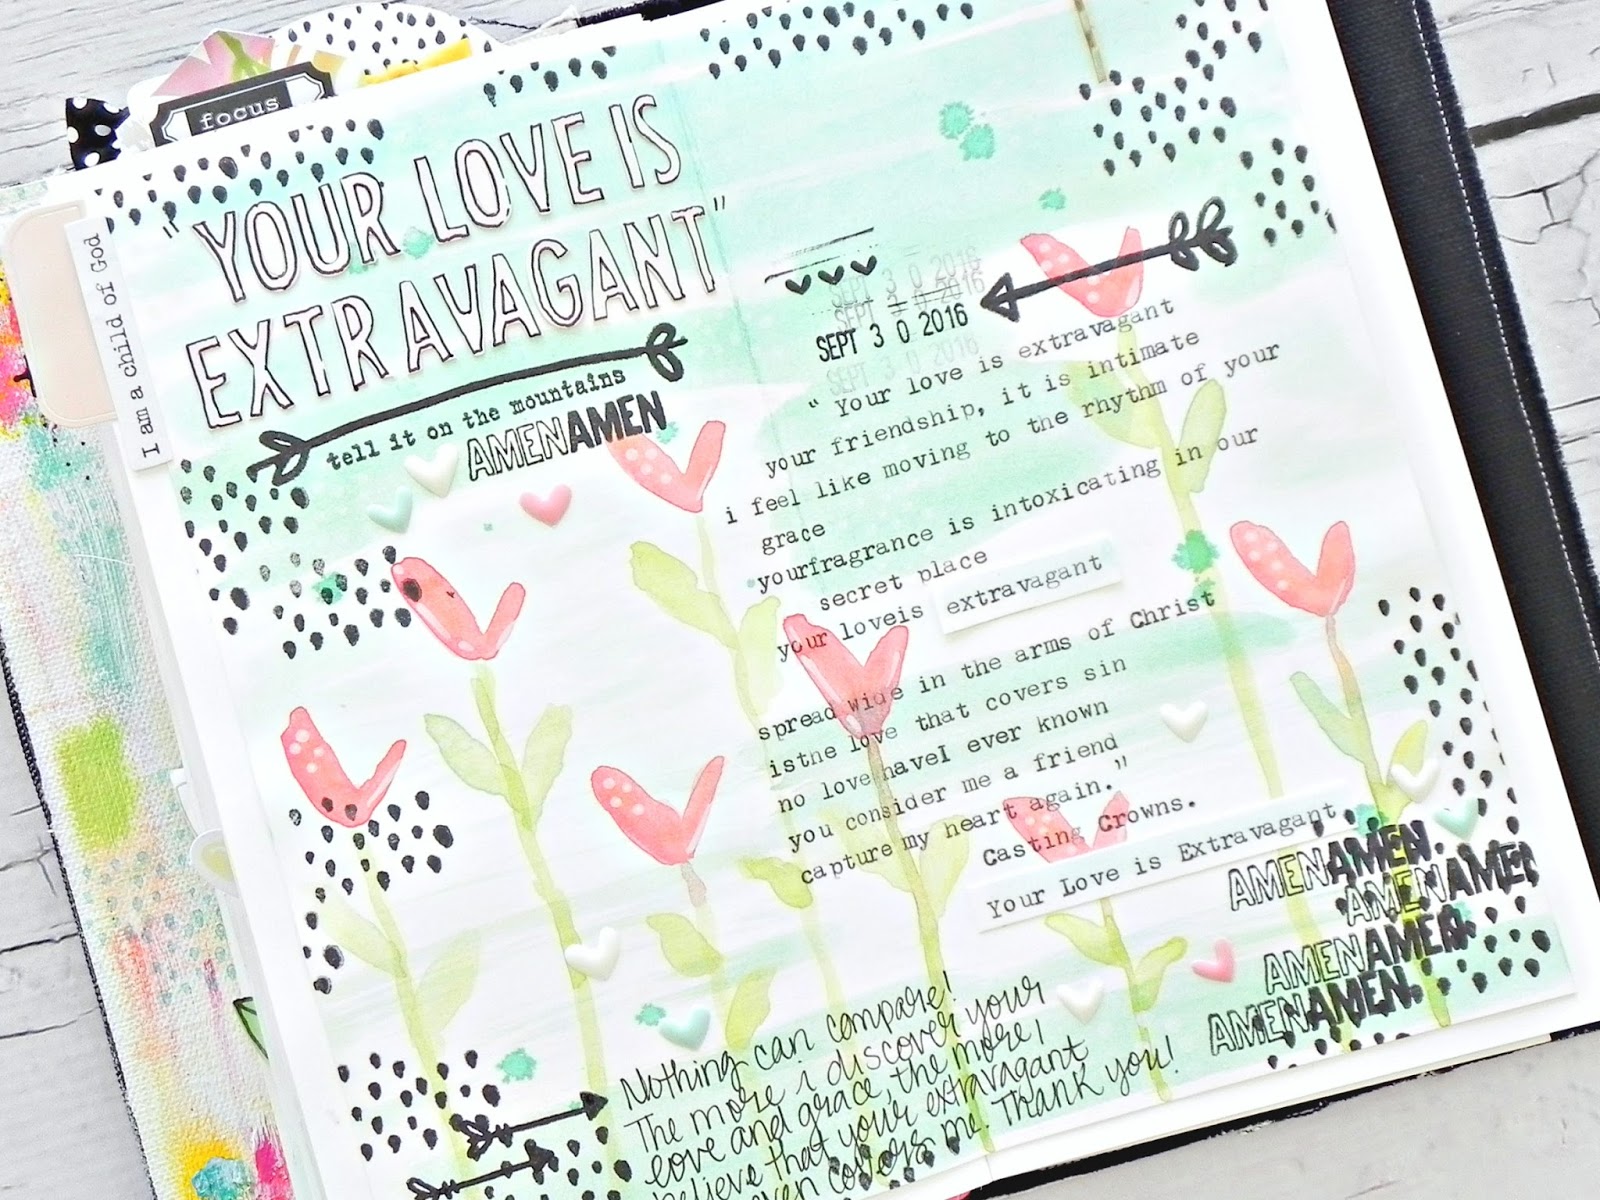 focus
I am a child of God
"YOUR LOVE IS
EXTRAVAGANT"
tell it on the mountains
AMENAMEN
SEPT 3 0 2016
SEPT 3 0 2016
SEPT 3 0 2016
SEPT 3 0 2016
" Your love is extravagant
your friendship, it is intimate
i feel like moving to the rhythm of your
grace
yourfragrance is intoxicating in our
secret place
your loveis extravagant
spread wide in the arms of Christ
istne love that covers sin
no love haveI ever known
you consider me a friend
capture my heart again."
Casting Crowns.
Your Love is Extravagant
AMENAMEN.
AMENAMEN
AMENAMEN
AMENAMEN.
Nothing can compare!
The more i discover your
love and grace, the more I
believe that your extravagant
even covers me. Thank you!